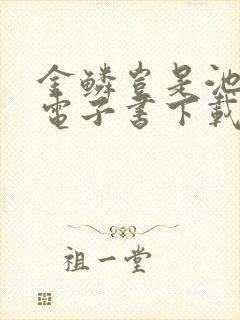 金鳞岂是池
電子書下載
祖一堂